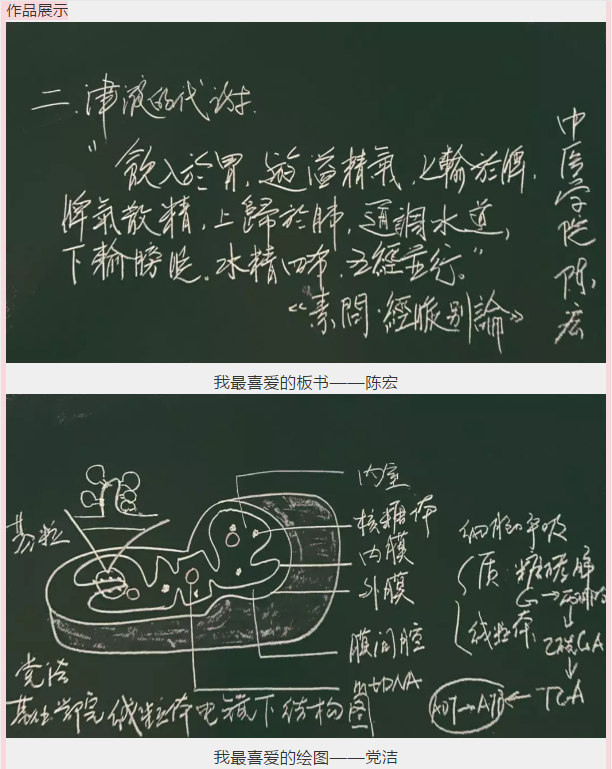 作品展示
二.津液的代谢.
"飲入於胃,遊溢精氣,上輸於脾.
脾氣散精,上歸於肺,通調水道,
下輸膀胱.水精四布,五經並行。"
《素問·經脈別論》
中医学院陈宏
我最喜爱的板书——陈宏
基粒
内室
核糖体
内膜
外膜
膜间腔
mtDNA
细胞呼吸
质:糖酵解
线粒体
TCA
ADP→ATP
党洁
基础医学院线粒体电镜下结构图
我最喜爱的绘图——党洁